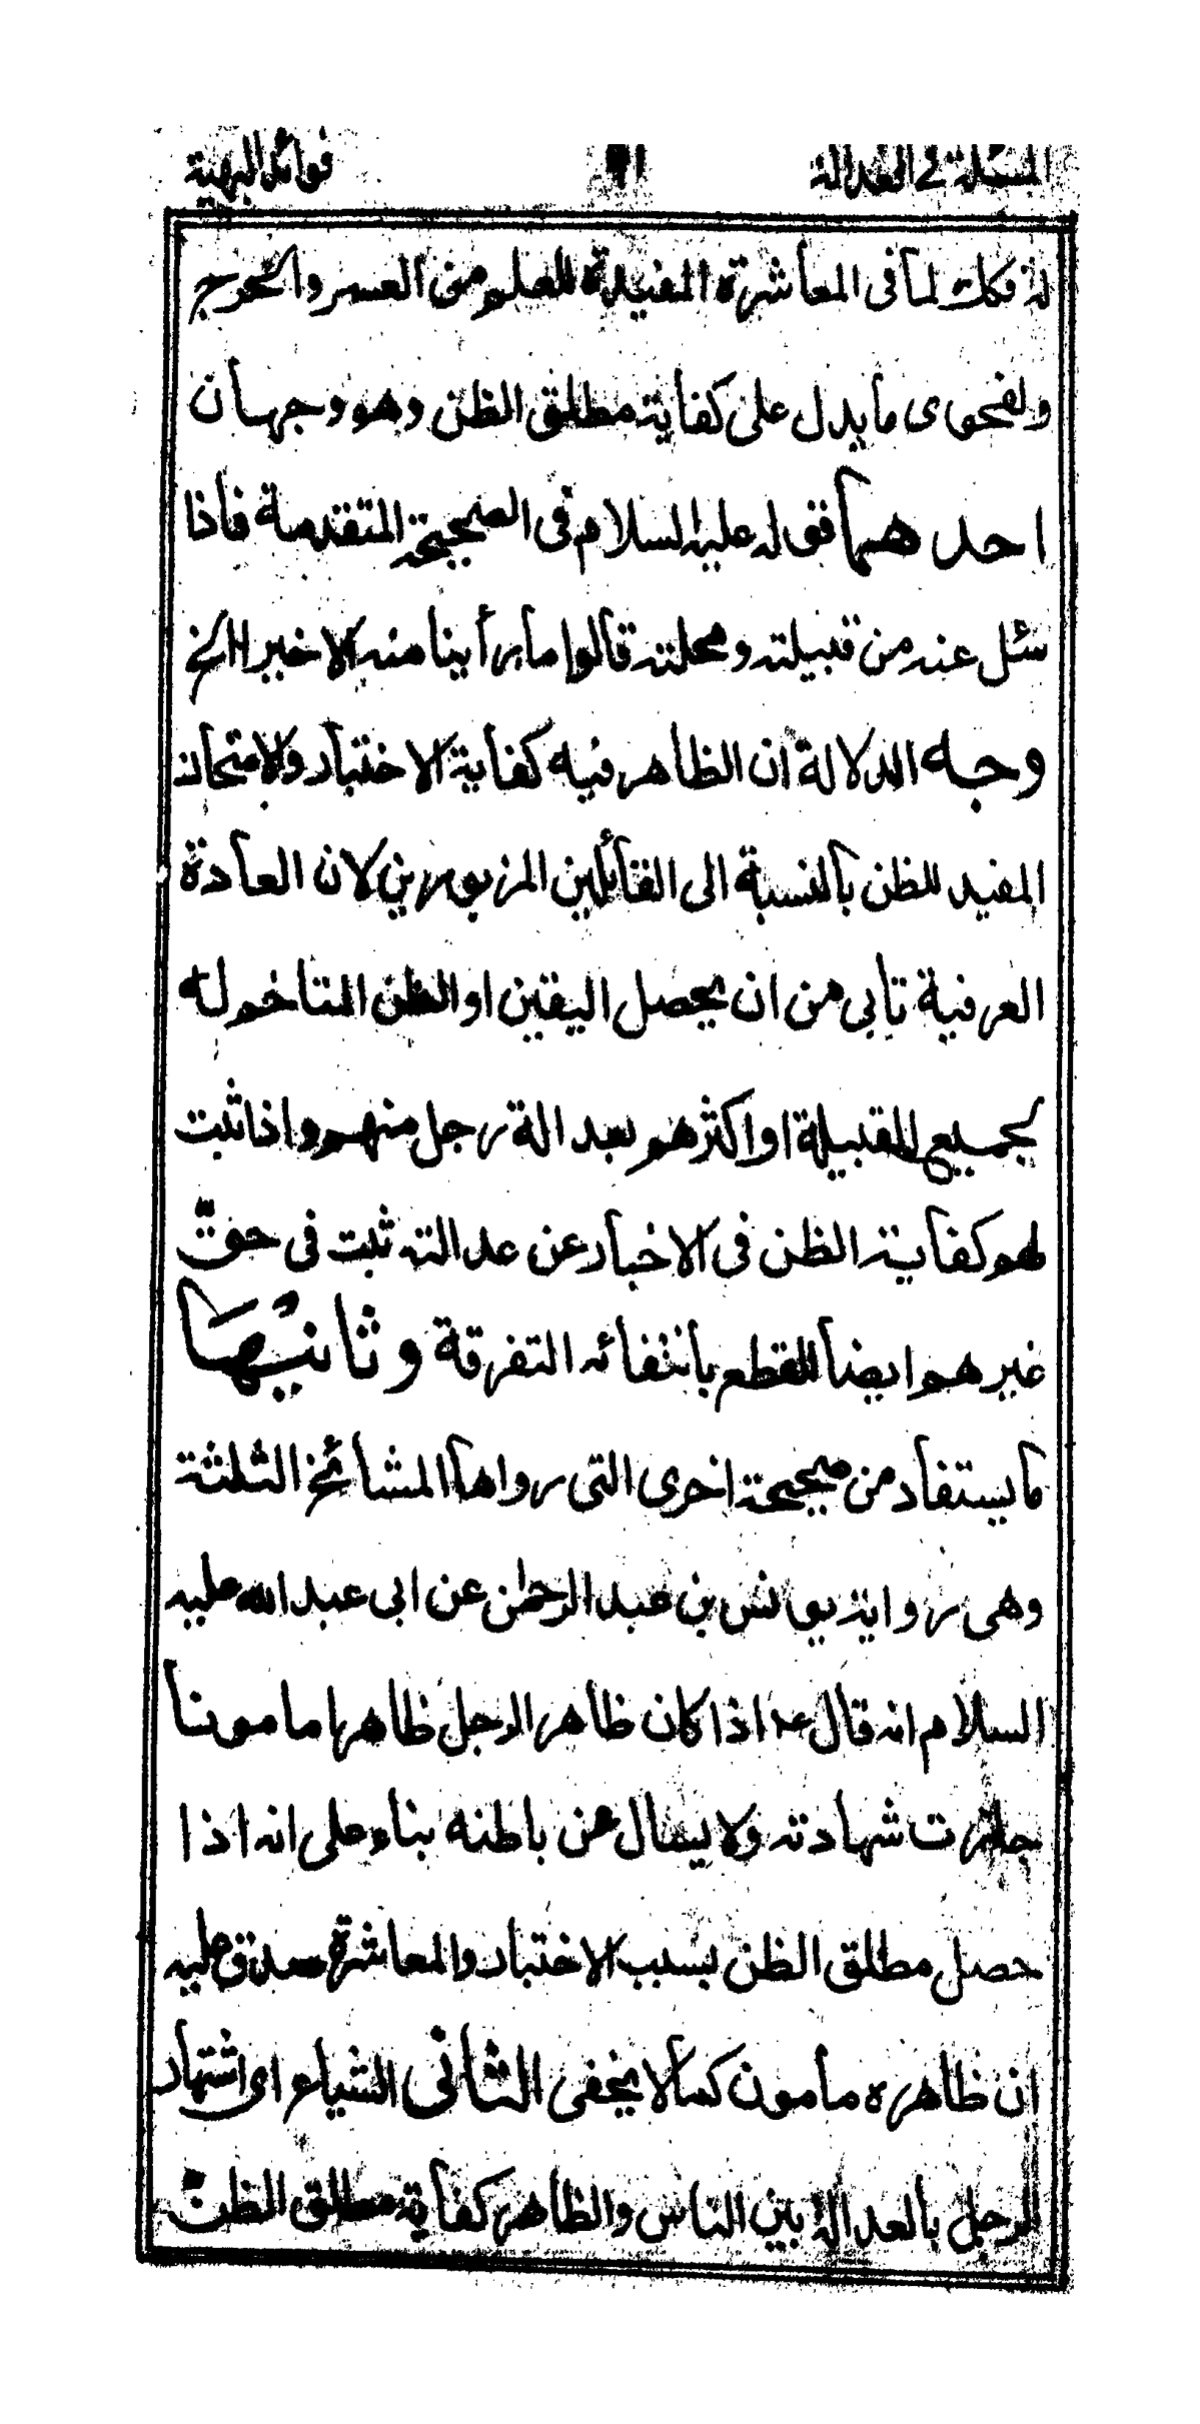 المسئلة في العدالة فوائد البهية
لذ فكك لما فى المعاشرة المفيدة للعلم من العسر والحرج
ولفحوى ما يدل على كفاية مطلق الظن وهو وجهان
احدهما فقوله عليه السلام فى الصحيحة المتقدمة فاذا
سئل عنه من قبيلته ومحلته قالوا ما رأينا منه الا خيرا الخ
وجه الدلالة ان الظاهر فيه كفاية الاختبار والامتحان
المفيد للظن بالنسبة الى القائلين المزبورين لان العادة
العرفية تأبى من ان يحصل اليقين او الظن المتاخم له
لجميع القبيلة او اكثرهم بعدالة رجل منهم واذا ثبت
لهم كفاية الظن فى الاخبار عن عدالته ثبت فى حق
غيرهم ايضا للقطع بانتفائه التفرقة وثانيها
ما يستفاد من صحيحة اخرى التى رواها المشائخ الثلثة
وهى رواية يونس بن عبد الرحمٰن عن ابى عبد الله عليه
السلام انه قال ع اذا كان ظاهر الرجل ظاهرا مامونا
جازت شهادته ولا يسال عن باطنه بناء على انه اذا
حصل مطلق الظن بسبب الاختبار والمعاشرة صدق عليه
ان ظاهره مأمون كما لا يخفى الثانى الشياع اى اشتهار
الرجل بالعدالة بين الناس والظاهر كفاية مطلق الظن